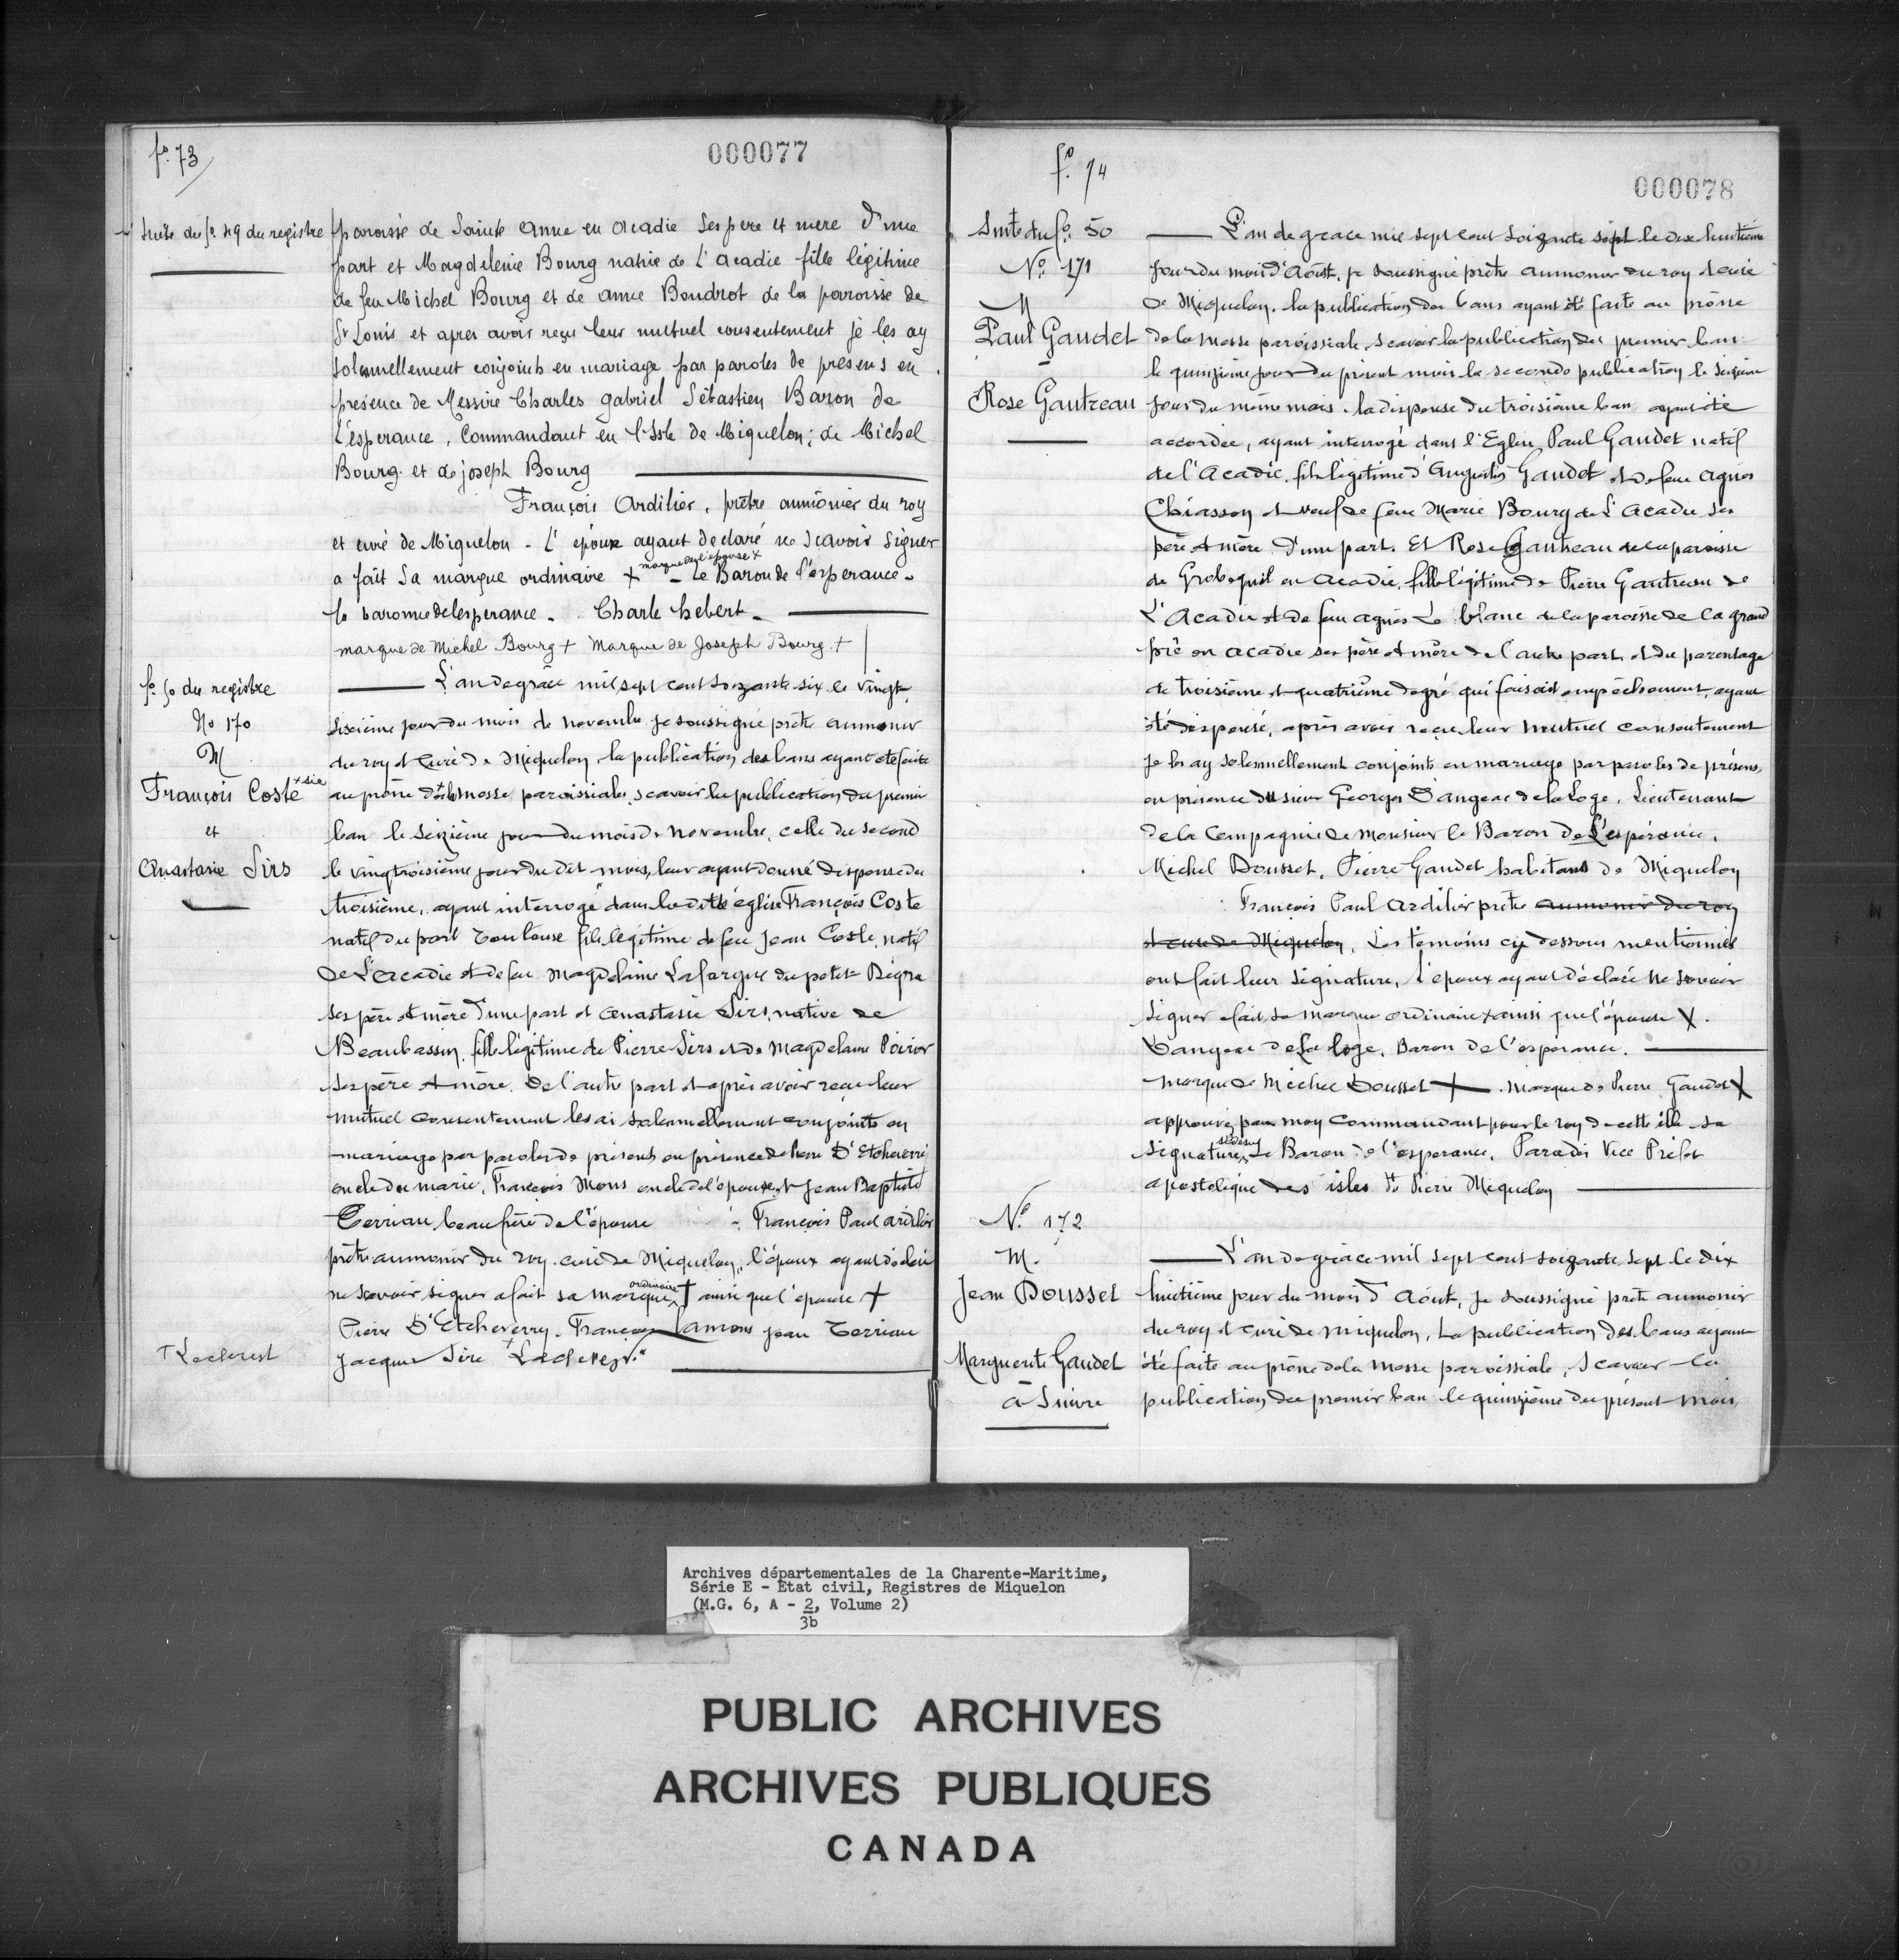 fo. 73
000077
Suite du fo. 49 du registre
paroisse de Sainte Anne en Acadie Ses pere et mere d'une
part et Magdelenie Bourg native de l'Acadie fille légitime
de feu Michel Bourg et de anne Boudrot de la paroisse de
St Louis et apres avoir reçu leur mutuel consentement je les ay
solennellement conjoints en mariage par paroles de presens en
presence de Messire Charles gabriel Sébastien Baron de
L'esperance, Commandant en l'Isle de Miquelon; de Michel
Bourg et de joseph Bourg
François Ardilier, prêtre aumônier du roy
et curé de Miquelon - L'époux ayant declaré ne scavoir signer
a fait sa marque ordinaire + marque de l'epouse + - Le Baron de l'esperance -
la baronne de lesperance - Charle hebert -
marque de Michel Bourg + Marque de Joseph Bourg +
fo. 50 du registre
No 170
M
François Coste
et
Anastasie Sirs
L'an de grâce mil sept cent soixante six le vingt
sixième jour du mois de novembre je soussigné prêtre aumonier
du roy et Curé de Miquelon, la publication des bans ayant été faite
au prône de la messe paroissiale, scavoir la publication du premier
ban le seizième jour du mois de novembre, celle du second
le vingtroisième jour du dit mois, leur ayant donné dispense du
troisième, ayant interrogé dans la ditte église François Coste
natif du port Toulouse fils légitime de feu Jean Coste, natif
de L'acadie et de feu Magdelaine Lafargue du petit Degra
ses père et mère d'une part et Anastasie Sirs, native de
Beaubassin, fille légitime de Pierre Sirs et de Magdelaine Poirier
ses père et mère, de l'autre part et après avoir reçu leur
mutuel consentement les ai solennellement conjoints en
mariage par paroles de présents en présence de Pierre D'Etcheverri
oncle du marié, François Mons oncle de l'épouse, et Jean Baptiste
Terriau beaufrère de l'épouse - François Paul ardilier
prêtre aumonier du roy. curé de Miquelon, l'époux ayant déclaré
ne scavoir signer a fait sa marque ordinaire + ainsi que l'épouse +
Pierre D'Etcheverry. François Lamons Jean Terriau
Jacques Sire
fo. 74
000078
Suite du fo. 50
No. 171
M
Paul Gaudet
-
Rose Gautreau
L'an de grace mil sept cent soixante sept le dix huitième
jour du mois d'Août, je soussigné prêtre aumonier du roy et curé
de Miquelon. la publication des bans ayant été faite au prône
de la messe paroissiale, scavoir la publication du premier ban
le quinzième jour du présent mois la seconde publication le seizième
jour du même mois. la dispense du troisième ban ayant été
accordée, ayant interrogé dans l'Eglise Paul Gaudet natif
de l'Acadie, fils légitime d'Augustin Gaudet et de feue Agnes
Chiasson et veuf de feue Marie Bourg de L'Acadie ses
père et mère d'une part. Et Rose Gautreau de la paroisse
de en Acadie, fille légitime de Pierre Gautreau de
L'Acadie et de feu agnès Le blanc de la paroisse de la grand
pré en Acadie ses père et mère de l'autre part et du parentage
de troisième et quatrième degré qui faisait empêchement, ayant
été dispensé, après avoir reçu leur mutuel consentement
Je les ay solennellement conjoints en mariage par paroles de présens,
en présence du sieur Georges Dangeac de la Loge, Lieutenant
de la Compagnie de Monsieur le Baron De L'espérance,
Michel Dousset, Pierre Gaudet habitans de Miquelon
François Paul Ardilier prêtre aumonier du roy
et curé de Miquelon, Les témoins cy dessous mentionnés
ont fait leur signature, l'époux ayant déclaré ne scavoir
signer a fait sa marque ordinaire + ainsi que l'épouse X.
Dangeac de La Loge, Baron de l'espérance.
marque de Michel Dousset + . marque de Pierre Gaudet X
approuvé par moy Commandant pour le roy de cette ille sa
signature Le Baron de l'esperance, Paradis Vice Préfet
apostolique des isles St Pierre Miquelon
No. 172
M.
Jean Dousset
Marguerite Gaudet
à Suivre
L'an de grâce mil sept cent soixante sept le dix
huitième jour du mois d'Août, Je soussigné prêtre aumonier
du roy et curé de Miquelon, La publication des bans ayant
été faite au prône de la messe paroissiale, scavoir la
publication du premier ban le quinzième du présent mois,
Archives départementales de la Charente-Maritime,
Série E - Etat civil, Registres de Miquelon
(M.G. 6, A - 2, Volume 2)
3b
PUBLIC ARCHIVES
ARCHIVES PUBLIQUES
CANADA